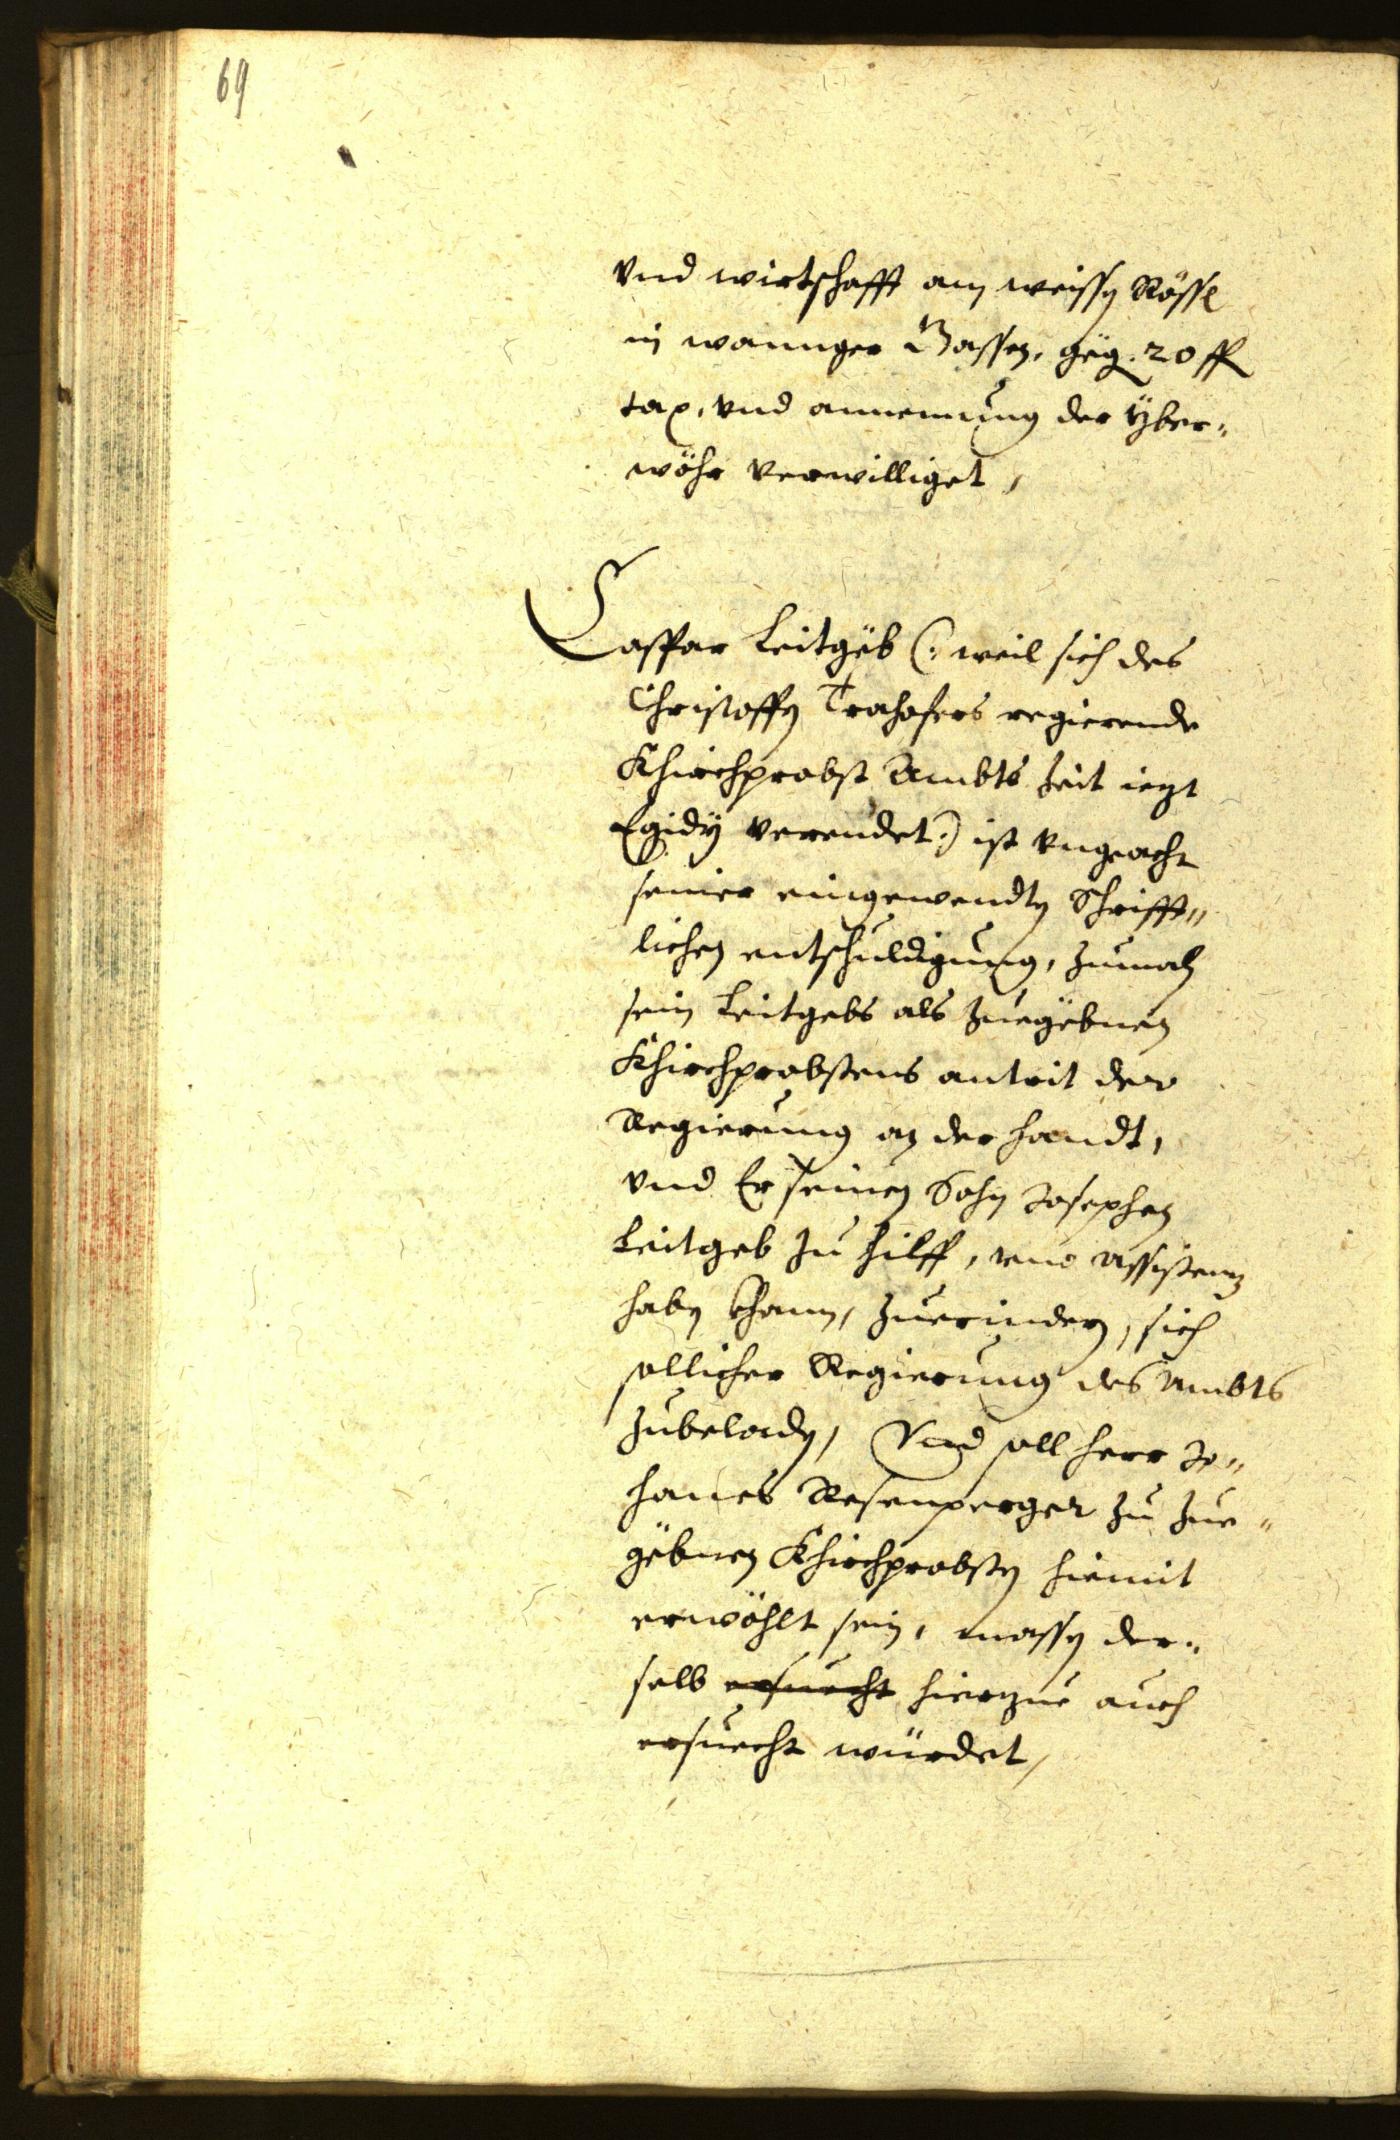 69
vnd wirtschafft am weissen Rössl
in wannger Gassen, geg. 20 fl
tax, vnd annemung der Yber-
wöhr verwilliget,
Casspar Leitgëb (: weil sich des
Christoffen Trahofers regierende
Khirchprobst Ambts Zeit iezt
Egidÿ verendet :) ist vngeacht
seiner eingewendten Schrifft-
lichen entschuldigung, zumaln
sein Leitgebs als zuegëbnen
Khirchprobstens antrit der
Regierung an der handt,
vnd Er seinen Sohn Josephen
Leitgeb zu hilff, vnd assistenz
haben khann, zuerindern, sich
sollicher Regierung des Ambts
zubeladen, Vnd soll herr Jo-
hanes Rosenperger zu zue-
gëbnen Khirchprobsten hiemit
erwöhlt sein, massen der-
selb ersuecht hierzue auch
ersuecht würdet,